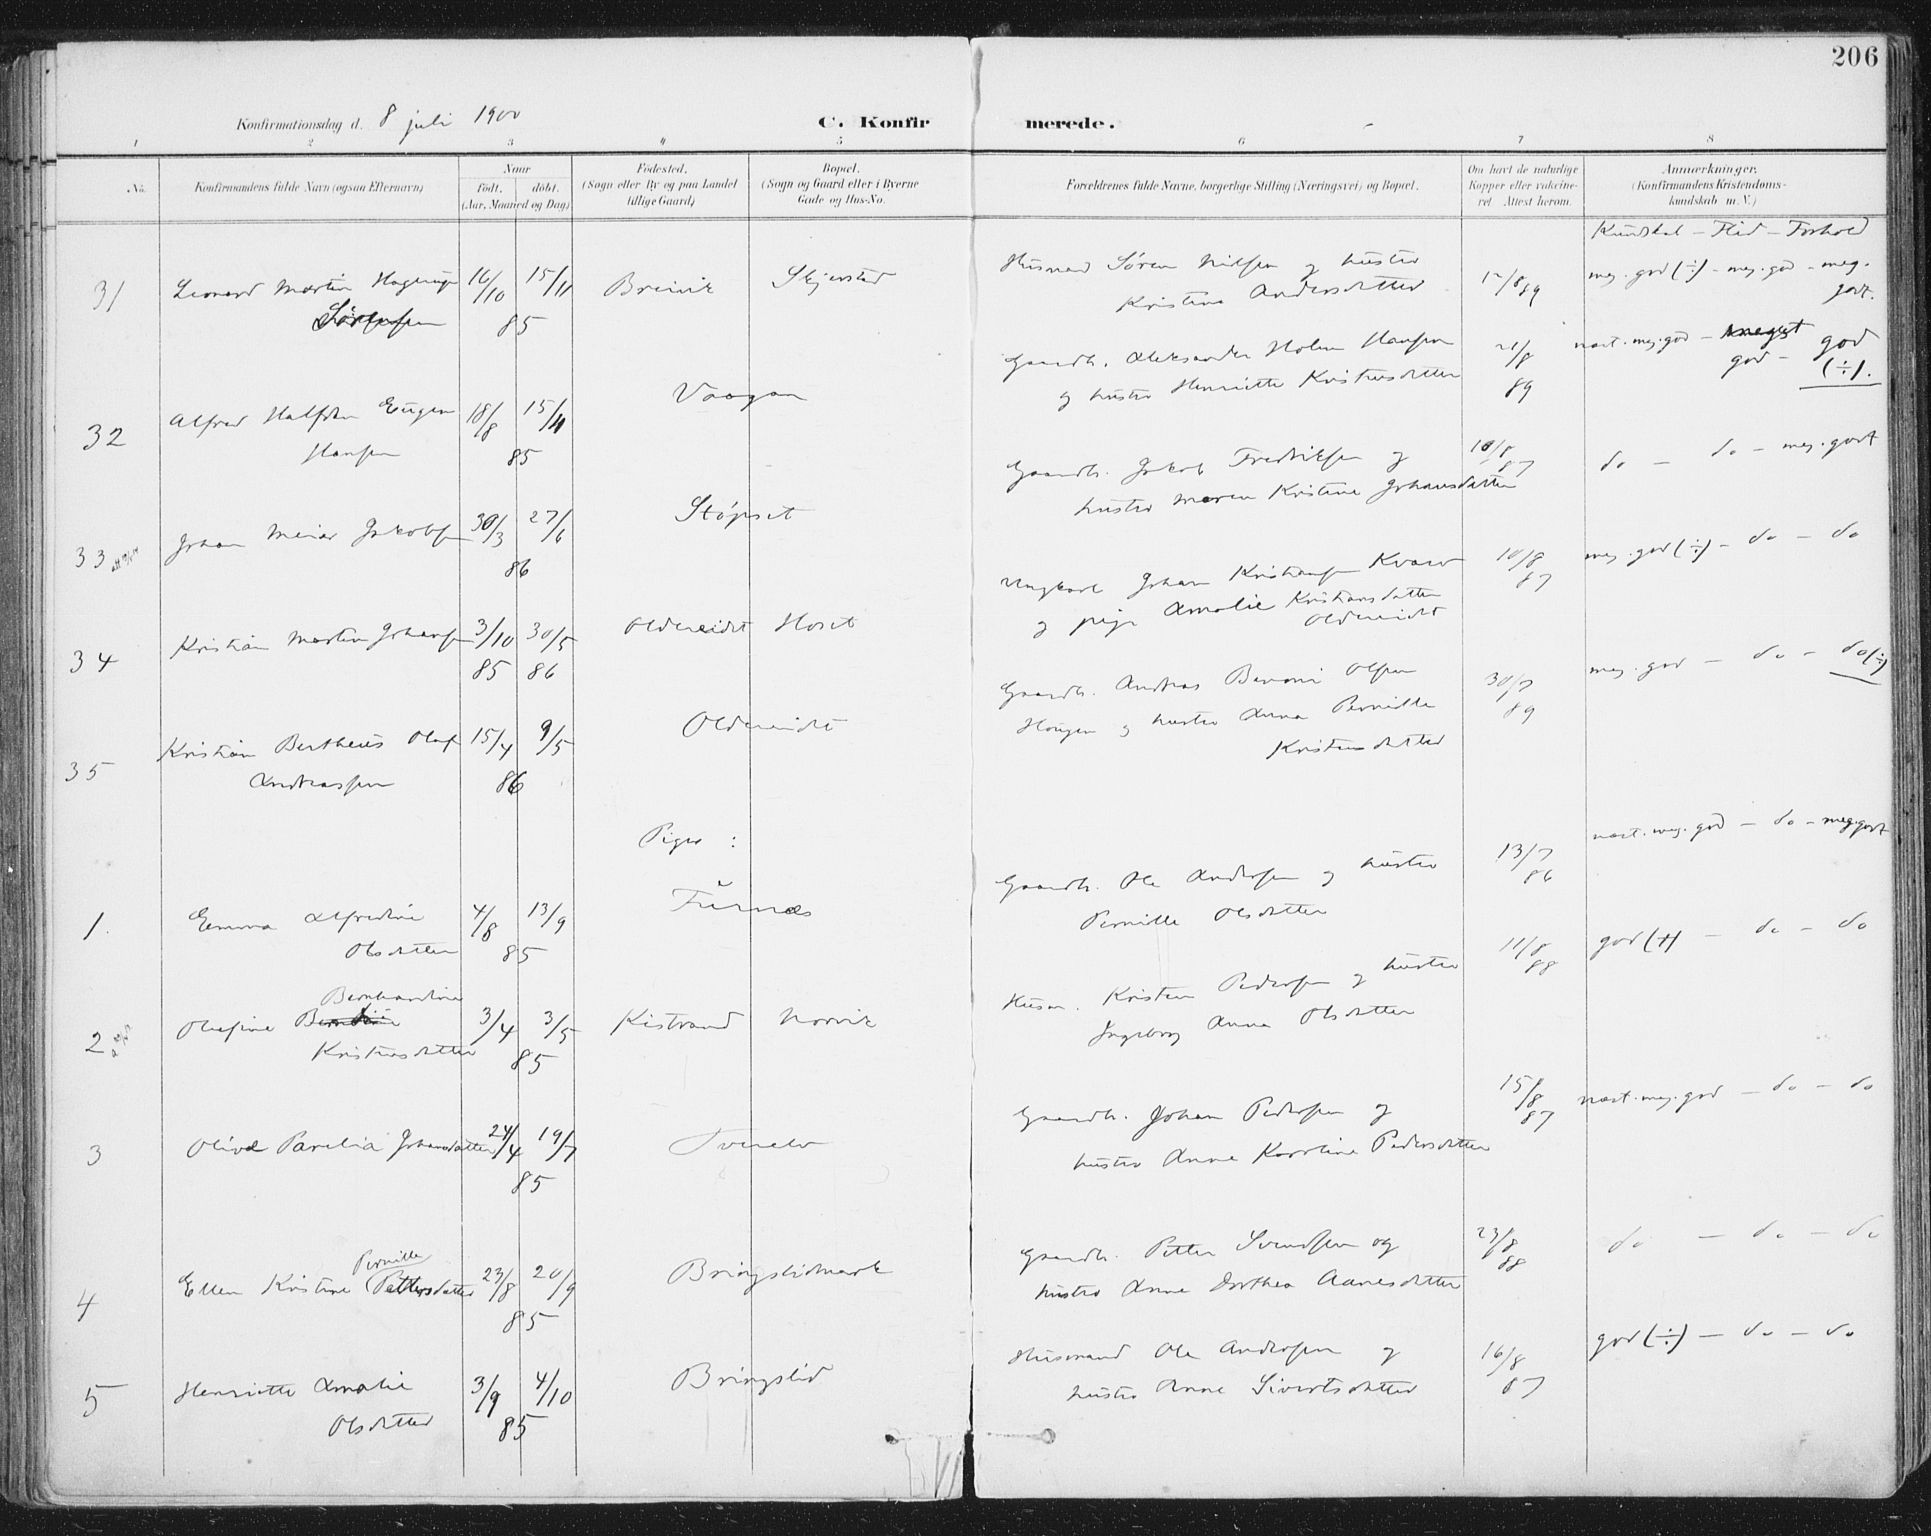 206
Konfirmationsdag d. 8 juli 1900
C. Konfir merede.
1 2 3 4 5 6 7 8
No.
Konfirmandens fulde Navn (ogsaa Efternavn)
Naar
født. døbt.
(Aar, Maaned og Dag)
Fødested.
(Sogn eller By og paa Landet
tillige Gaard)
Bopæl.
(Sogn og Gaard eller i Byerne
Gade og Hus-No.
Forældrenes fulde Navne, borgerlige Stilling (Næringsvei) og Bopæl.
Om havt de naturlige
Kopper eller vakcine-
ret Attest herom.
Anmærkninger.
(Konfirmandens Kristendoms-
kundskab m. V.)
Kundskab - Flid - Forhold
31 Leonard Martin Hagerup 16/10 15/11 Breivik Skjerstad Husmand Søren Nilsen og hustru 17/8 89 meg. god (÷) - meg. god - meg.
Sørensen 85 Kristine Andersdatter godt.
32 Alfred Halfdan Eugen 18/8 15/11 Vaagan Gaardb. Aleksander Holm Hansen 21/8 næst. meg. god - meget god
Hansen 85 og hustru Henriette Kristensdatter 89 god - (÷).
33 Johan Meier Jakobsen 30/3 27/6 Støpset Gaardb. Jakob Fredriksen og 10/8 87 do - do - meg. godt
86 hustru Maren Kristine Johansdatter
34 Kristian Martin Johansen 3/10 30/5 Oldereidet Hoset Ungkarl Johan Kristiansen Kvarv 10/8 87 meg. god (÷) - do - do
85 86 og pige Amalie Kristiansdatter
Oldereidet
35 Kristian Bertheus Olaf 15/4 9/5 Oldereidet Gaardb. Andreas Benoni Olsen 30/7 89 meg. god - do - do (÷)
Andreassen 86 Haugen og hustru Anna Pernille
Kristensdatter
Piger :
1. Emma Alfredine 4/8 13/9 Furnæs Gaardb. Ole Andersen og hustru 13/7 86 næst. meg. god - do - meg. godt
Olsdatter 85 Pernille Olsdatter
Bernhardine
2 Olufine Kristensdatter 3/4 3/5 Kistrand Norvik Husm. Kristen Pedersen og hustru 11/8 88 god (+) - do - do
85 Ingeborg Anna Olsdatter
3 Olive Parelia Johansdatter 24/4 19/7 Tverelv Gaardb. Johan Pedersen og 15/8 87 næst. meg. god - do - do
85 hustru Anne Karoline Pedersdatter
Pernille
4 Ellen Kristine Pettersdatter 23/8 20/9 Bringslidmark Gaardb. Petter Svendsen og 23/8 88 do - do - do
85 hustru Anne Dorthea Aanesdatter
5 Henriette Amalie 3/9 4/10 Bringslid Husmand Ole Andersen og 16/8 87 god (÷) - do - do
Olsdatter 85 hustru Anne Sivertsdatter